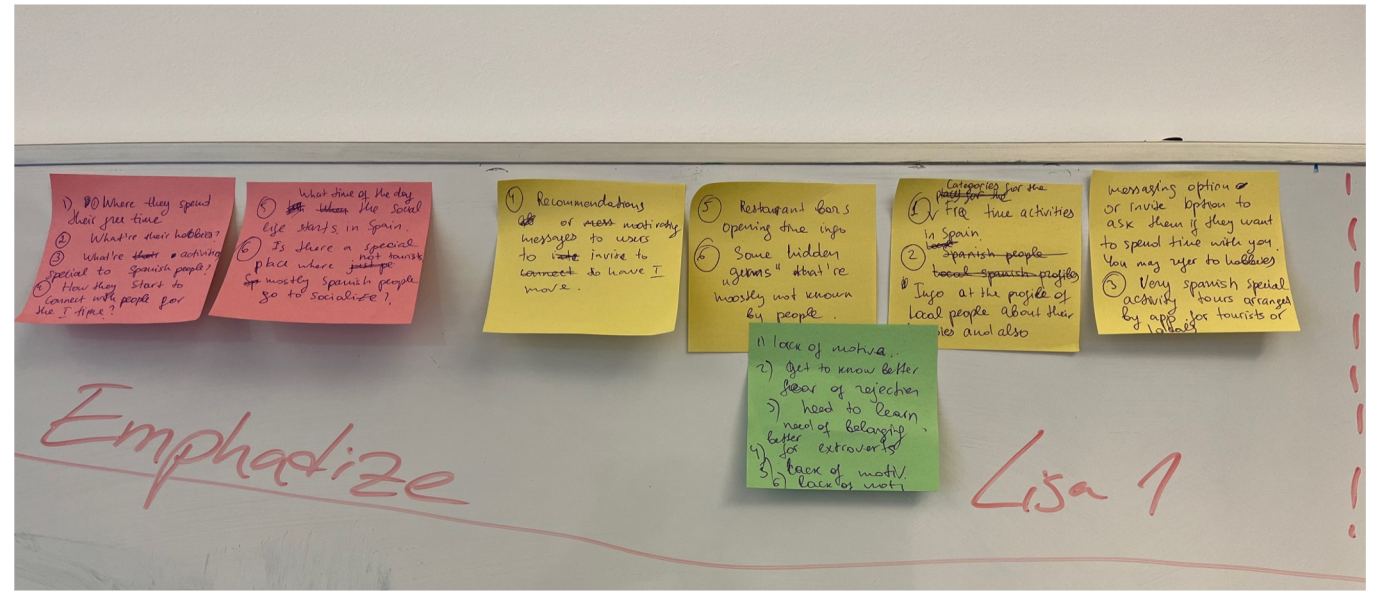 1) Where they spend
their free time
② What're their hobbies?
③ What're activities
special to Spanish people?
④ How they start to
connect with people for
the I time?
What time of the day
⑤ the social
life starts in Spain.
⑥ Is there a special
place where not tourists
mostly Spanish people
go to socialize?
④ Recommendations
or motivating
messages to users
to invite to
connect to have I
move.
⑤ Restaurant bars
opening time info
⑥ Some hidden
gems" that're
mostly not known
by people.
Categories for the
① Free time activities
in Spain.
② Spanish people
Local Spanish profiles
Info at the profile of
local people about their
and also
messaging option
or invite option to
ask them if they want
to spend time with you.
You may refer to hobbies
③ Very spanish special
activity tours arranged
by app for tourists or
locals
1) lack of motiva..
2) get to know better
fear of rejection
3) need to learn
need of belonging.
better
4) for extroverts
5) Lack of motiv.
6) Lack of moti
Emphadize
Lisa 1